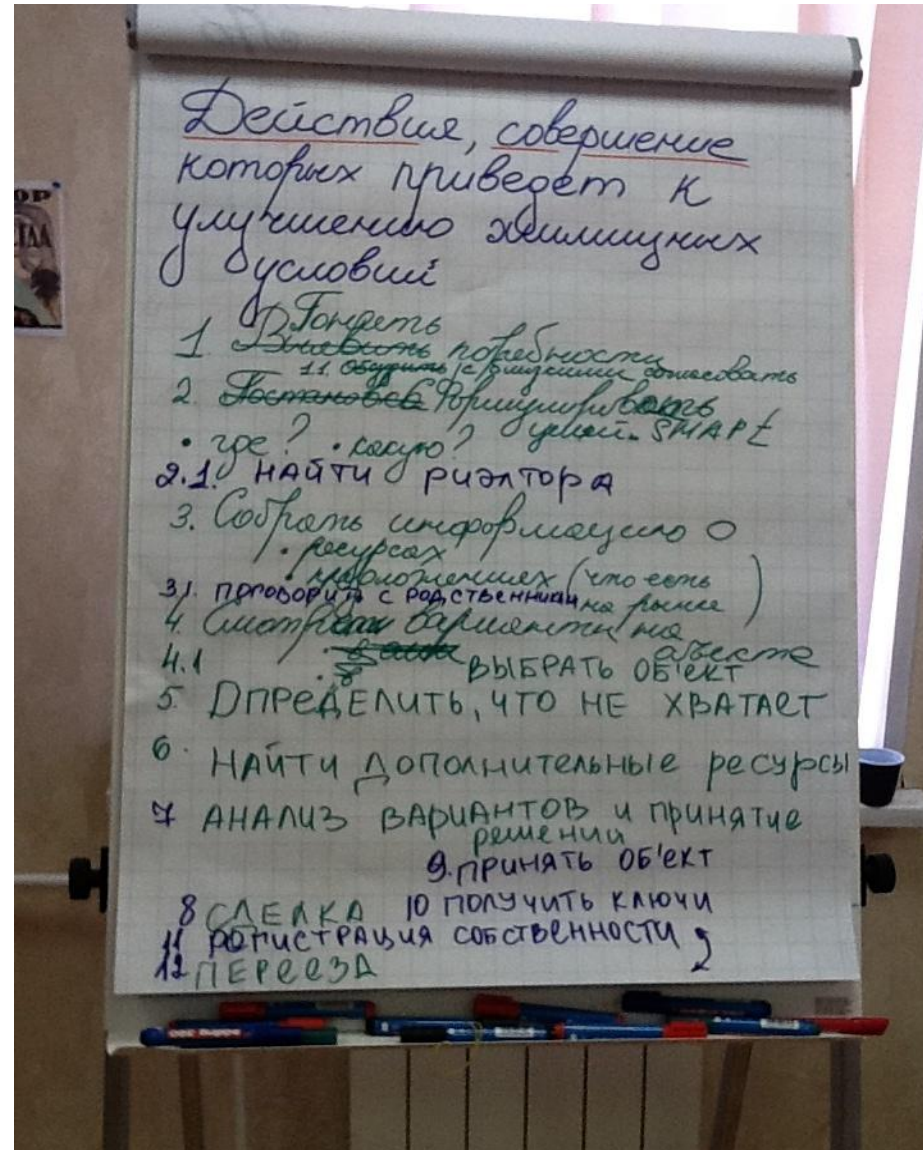 ОР
Действия, совершение
которых приведет к
улучшению жилищных
условий
Понять
1 Выявить потребности
1.1. Обсудить с близкими согласовать
2. Постановка Формулировать
• где? • какую?
2.1. НАЙТИ РИЭЛТОРА
3. Собрать информацию о
• ресурсах
• предложениях (что есть
на рынке)
3.1. ПОГОВОРИТЬ С РОДСТВЕННИКАМИ
4. Смотреть варианты на
объекте
4.1 ВЫБРАТЬ ОБ'ЕКТ
5. ОПРЕДЕЛИТЬ, ЧТО НЕ ХВАТАЕТ
6. НАЙТИ ДОПОЛНИТЕЛЬНЫЕ РЕСУРСЫ
7 АНАЛИЗ ВАРИАНТОВ И ПРИНЯТИЕ
решении
9. ПРИНЯТЬ ОБ'ЕКТ
8 СДЕЛКА 10 ПОЛУЧИТЬ КЛЮЧИ
11 РЕГИСТРАЦИЯ СОБСТВЕННОСТИ
12 ПЕРЕЕЗД